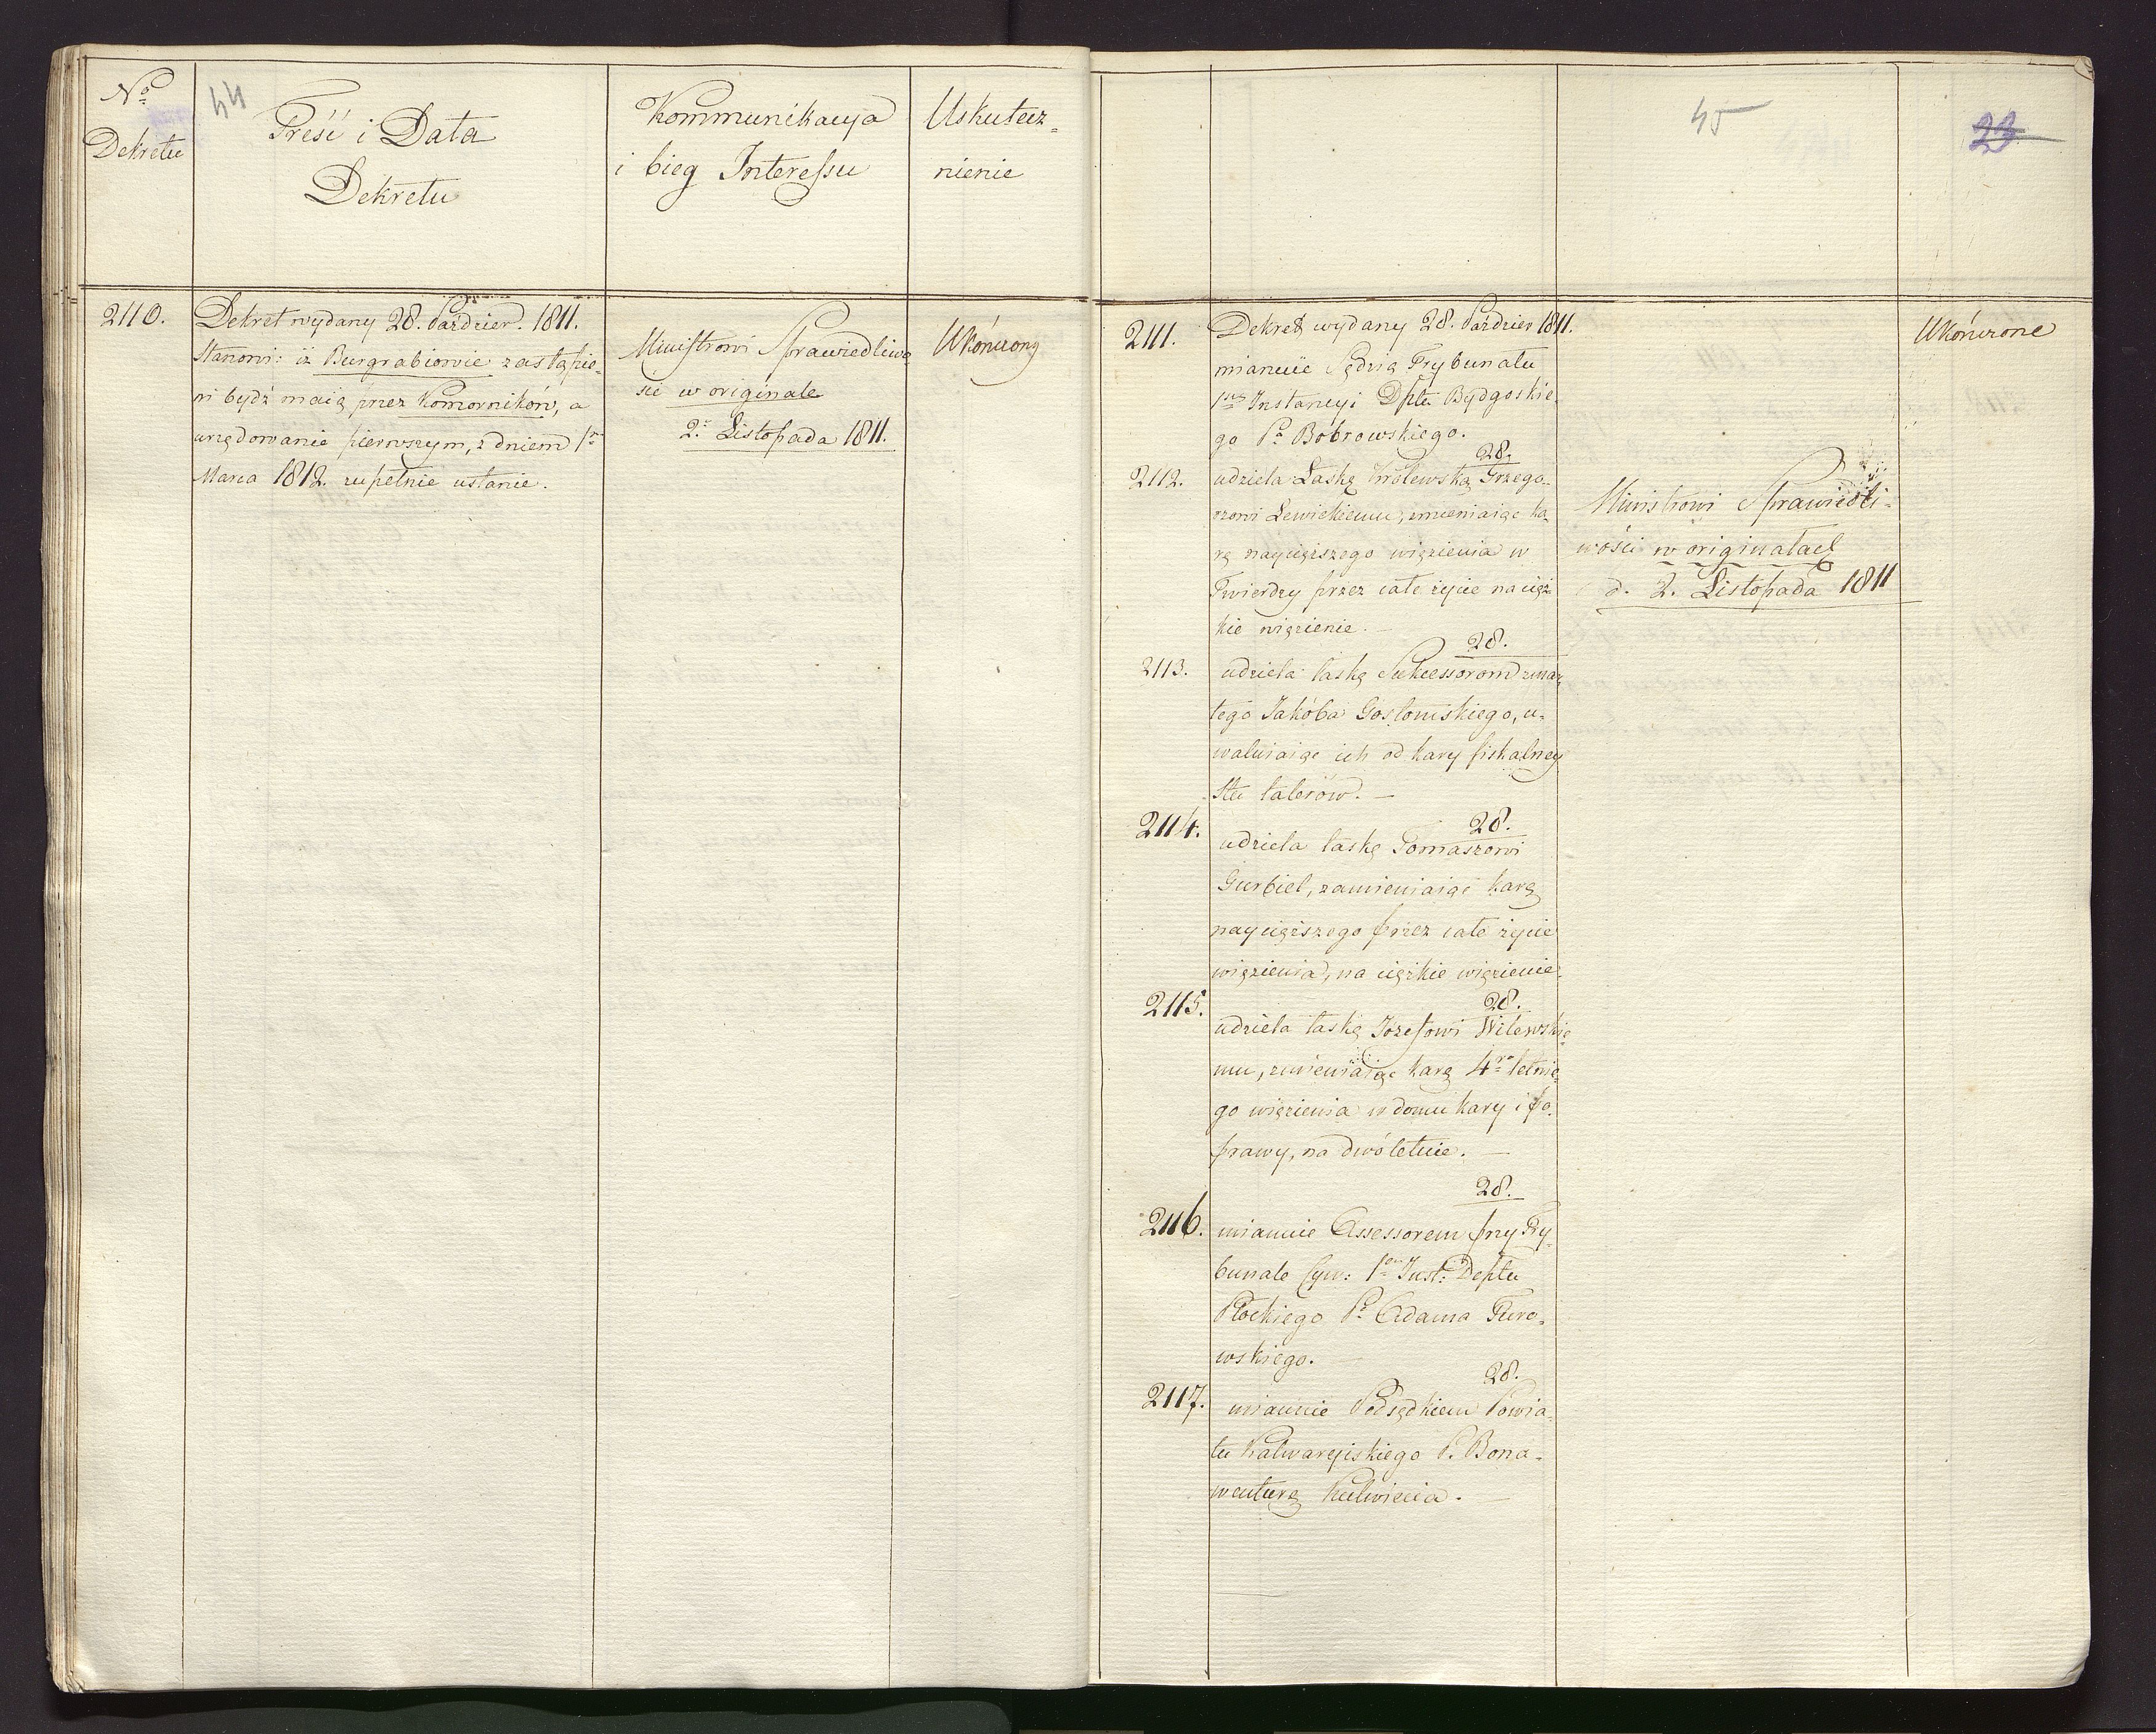 44
No
Dekretu
Treść i Data
Dekretu
Kommunikacya
i bieg Interessu
Uskutecz=
nienie
2110.
Dekret wydany 28. Paździer. 1811.
Stanowi: iż Burgrabiowie zastąpie=
ni bydź maią przez Komorników, a
urzędowanie pierwszym, z dniem 1o
Marca 1812. zupełnie ustanie.
Ministrowi Sprawiedliwo=
ści w originale
2o Listopada 1811.
Ukończony
45
23
2111.
Dekret wydany 28. Paździer 1811.
mianuie Sędzią Trybunału
1szey Instancyi Dptu Bydgoskie=
go Po Bobrowskiego.
28.
2112.
udziela Łaskę Królewską Grzego=
rzowi Lewickiemu, zmieniaiąc ka=
rę naycięższego więzienia w
Twierdzy przez całe życie na cięż=
kie więzienie. —
28.
2113.
udziela łaskę Sukcessorom zmar=
łego Jakóba Gostomskiego, u=
walniaiąc ich od kary fiskalney
Stu talerów. —
28.
2114.
udziela łaskę Tomaszowi
Gurbiel, zamieniaiąc karę
naycięższego przez całe życie
więzienia, na ciężkie więzienie.
28.
2115.
udziela łaskę Jozefowi Wilewskie=
mu, zmieniaiąc karę 4ro letnie=
go więzienia w domu kary i po=
prawy, na dwóletnie. —
28.
2116.
mianuie Assessorem przy Try=
bunale Cyw: 1ey Inst: Deptu
Płockiego Po Adama Turo=
wskiego. —
28.
2117.
mianuie Podsędkiem Powia=
tu Kalwaryiskiego P. Bona=
wenturę Kulwiecia. —
Ministrowi Sprawiedli=
wości w originałach
d. 2. Listopada 1811
Ukończone